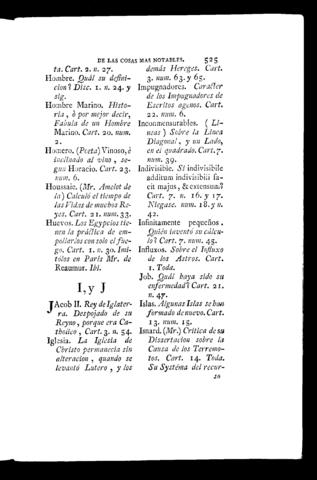 DE LAS COSAS MAS NOTABLES. 525
ta. Cart. 2. n. 27.
Hombre. Quál su defini-
cion? Disc. 1. n. 24. y
sig.
Hombre Marino. Histo-
ria, ó por mejor decir,
Fabula de un Hombre
Marino. Cart. 20. num.
2.
Homero. (Poeta) Vinoso, è
inclinado al vino, se-
gun Horacio. Cart. 23.
num. 6.
Houssaie. (Mr. Amelot de
la) Calculó el tiempo de
las Vidas de muchos Re-
yes. Cart. 21. num. 33.
Huevos. Los Egypcios tie-
nen la práctica de em-
pollarlos con solo el fue-
go. Cart. 1. n. 30. Imi-
tólos en París Mr. de
Reaumur. Ibi.
I, y J
Jacob II. Rey de Iglater-
ra. Despojado de su
Reyno, porque era Ca-
tholico, Cart. 3. n. 54.
Iglesia. La Iglesia de
Christo permanecia sin
alteracion, quando se
levantó Lutero, y los
demás Hereges. Cart.
3. num. 63. y 65.
Impugnadores. Caracter
de los Impugnadores de
Escritos agenos. Cart.
22. num. 6.
Inconmensurables. (Lí-
neas) Sobre la Linea
Diagonal, y un Lado,
en el quadrado. Cart. 7.
num. 39.
Indivisible. Si indivisibile
additum indivisibili fa-
cit majus, & extensum?
Cart. 7. n. 16. y 17.
Niegase. num. 18. y n.
42.
Infinitamente pequeños.
Quién inventó su cálcu-
lo? Cart. 7. num. 45.
Influxos. Sobre el Influxo
de los Astros. Cart.
1. Toda.
Job. Quál haya sido su
enfermedad? Cart. 21.
n. 47.
Islas. Algunas Islas se han
formado de nuevo. Cart.
13. num. 15.
Isnard. (Mr.) Crítica de su
Dissertacion sobre la
Causa de los Terremo-
tos. Cart. 14. Toda.
Su Systéma del recur-
so